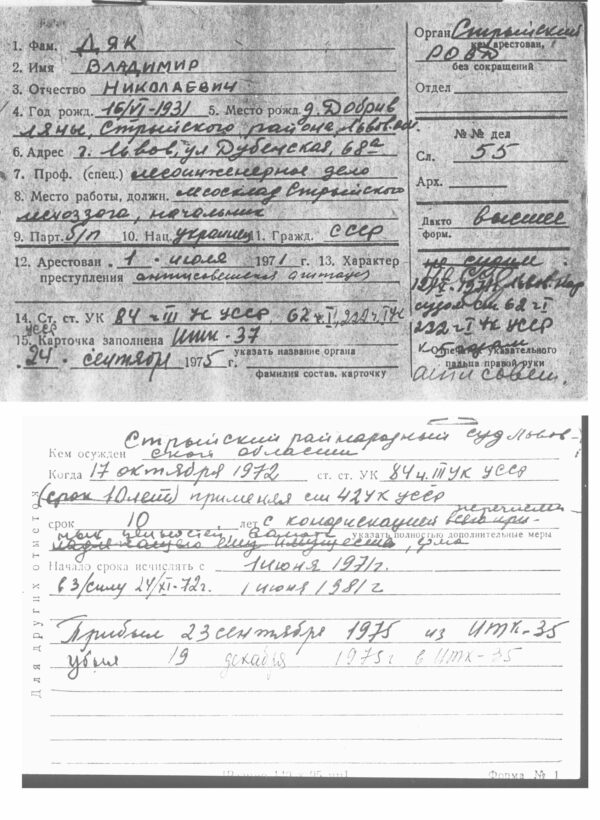 1. Фам. ДЯК
2. Имя ВЛАДИМИР
3. Отчество НИКОЛАЕВИЧ
4. Год рожд. 16/VI-1931 5. Место рожд. д. Добрив
ляны, Стрыйского района, Львов. об
6. Адрес г. Львов, ул Дубенская, 68а
7. Проф. (спец.) лесоинженерное дело
8. Место работы, должн. лесосклад Стрыйского
лесхоззага, начальник
9. Парт. б/п 10. Нац. украинец 11. Гражд. СССР
12. Арестован 1 июля 1971 г. 13. Характер
преступления антисоветская агитация
14. Ст. ст. УК 84 ч III УК УССР, 62 ч I, 222 ч I УК
УССР
15. Карточка заполнена ИТК-37
указать название органа
24 сентября 1975 г.
фамилия состав. карточку
Орган Стрыйский
кем арестован,
РОВД
без сокращений
Отдел
№ № дел
Сл. 55
Арх.
Дакто
форм. высшее
не судим
Львов.
судом ст 62 ч I
УК УССР
Отпечаток указательного
пальца правой руки
антисовет.
Кем осужден Стрыйский райнародный суд Львов-
ской области
Когда 17 октября 1972 ст. ст. УК 84 ч. III УК УССР
(срок 10 лет) применяя ст 42 УК УССР
срок 10 лет с конфискацией всего при-
указать полностью дополнительные меры
надлежащего ему имущества
Начало срока исчислять с 1 июня 1971 г.
в з/силу 24/XI-72 г. 1 июня 1981 г
Прибыл 23 сентября 1975 из ИТК-35
убыл 19 декабря 1975 г в ИТК-35
Для других отметок
Форма № 1